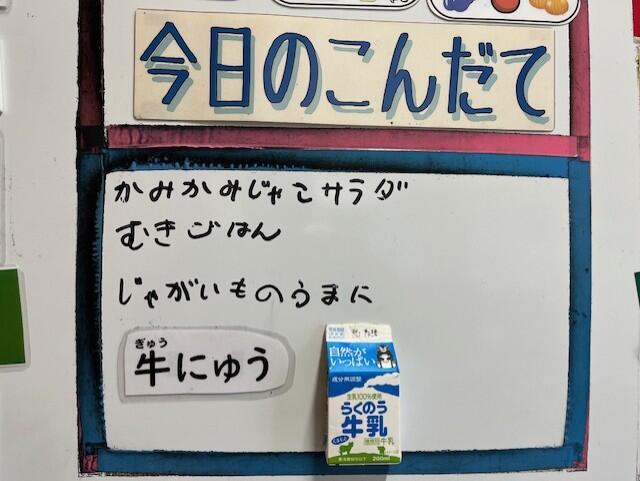 今日のこんだて
かみかみじゃこサラダ
むぎごはん
じゃがいものうまに
ぎゅう
牛にゅう
自然が
いっぱい
成分無調整
生乳100%使用
らくのう
牛乳
種類別牛乳
200ml